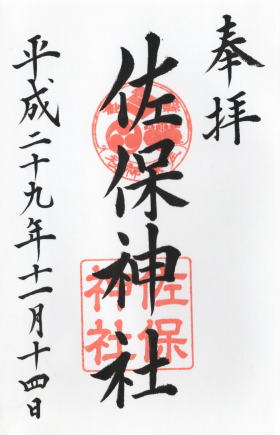 奉拝
佐保神社
平成二十九年十一月十四日
佐保
神社